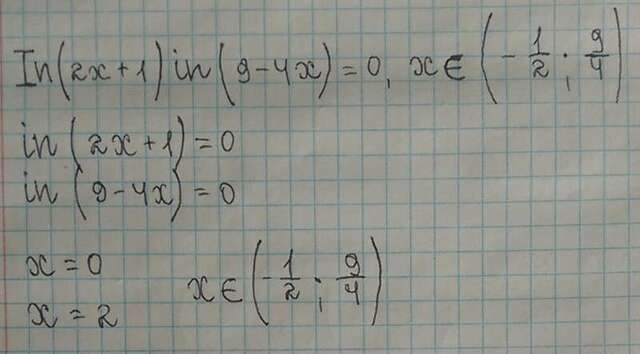 In(2x+1)in(9-4x)=0, x∈(-1/2; 9/4)
in(2x+1)=0
in(9-4x)=0
x=0
x=2
x∈(-1/2; 9/4)